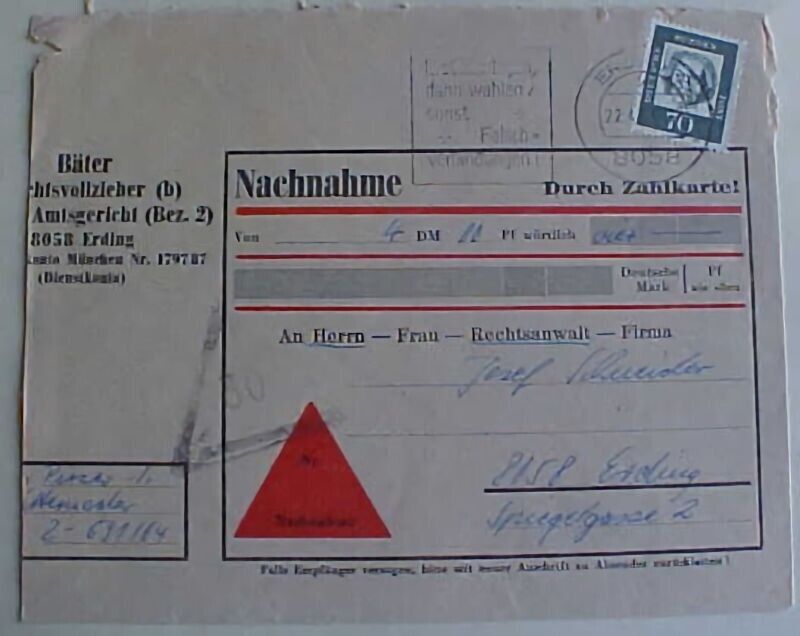 dann wählen
sonst
Falsch=
verbindungen!
22.
8058
70
Bäter
htsvollzieher (b)
Amtsgericht (Bez. 2)
8058 Erding
konto München Nr. 179787
(Dienstkonto)
Nachnahme
Durch Zahlkarte!
Von 4 DM 11 Pf wörtlich
Deutsche Pf
Mark wie oben
An Herrn — Frau — Rechtsanwalt — Firma
Josef Schneider
8058 Erding
Spiegelgasse 2
Nr.
Nachnahme
Falls Empfänger verzogen, bitte mit neuer Anschrift an Absender zurückleiten!